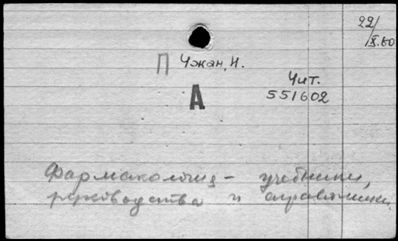 22/
X.60
П Чжан, И.
Чит.
551602
А
Фармакология - учебники,
руководства и справочники.